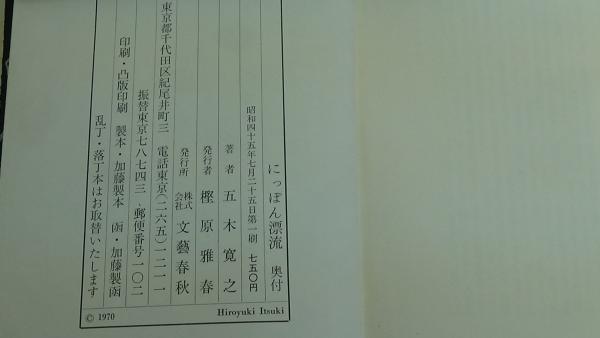 にっぽん漂流 奥付
昭和四十五年七月二十五日第一刷 七五〇円
著者 五木寛之
発行者 樫原雅春
発行所 株式会社 文藝春秋
東京都千代田区紀尾井町三 電話東京(二六五)一二一一
振替東京七八七四三、郵便番号一〇二
印刷・凸版印刷 製本・加藤製本 函・加藤製函
乱丁・落丁本はお取替いたします
© 1970 Hiroyuki Itsuki